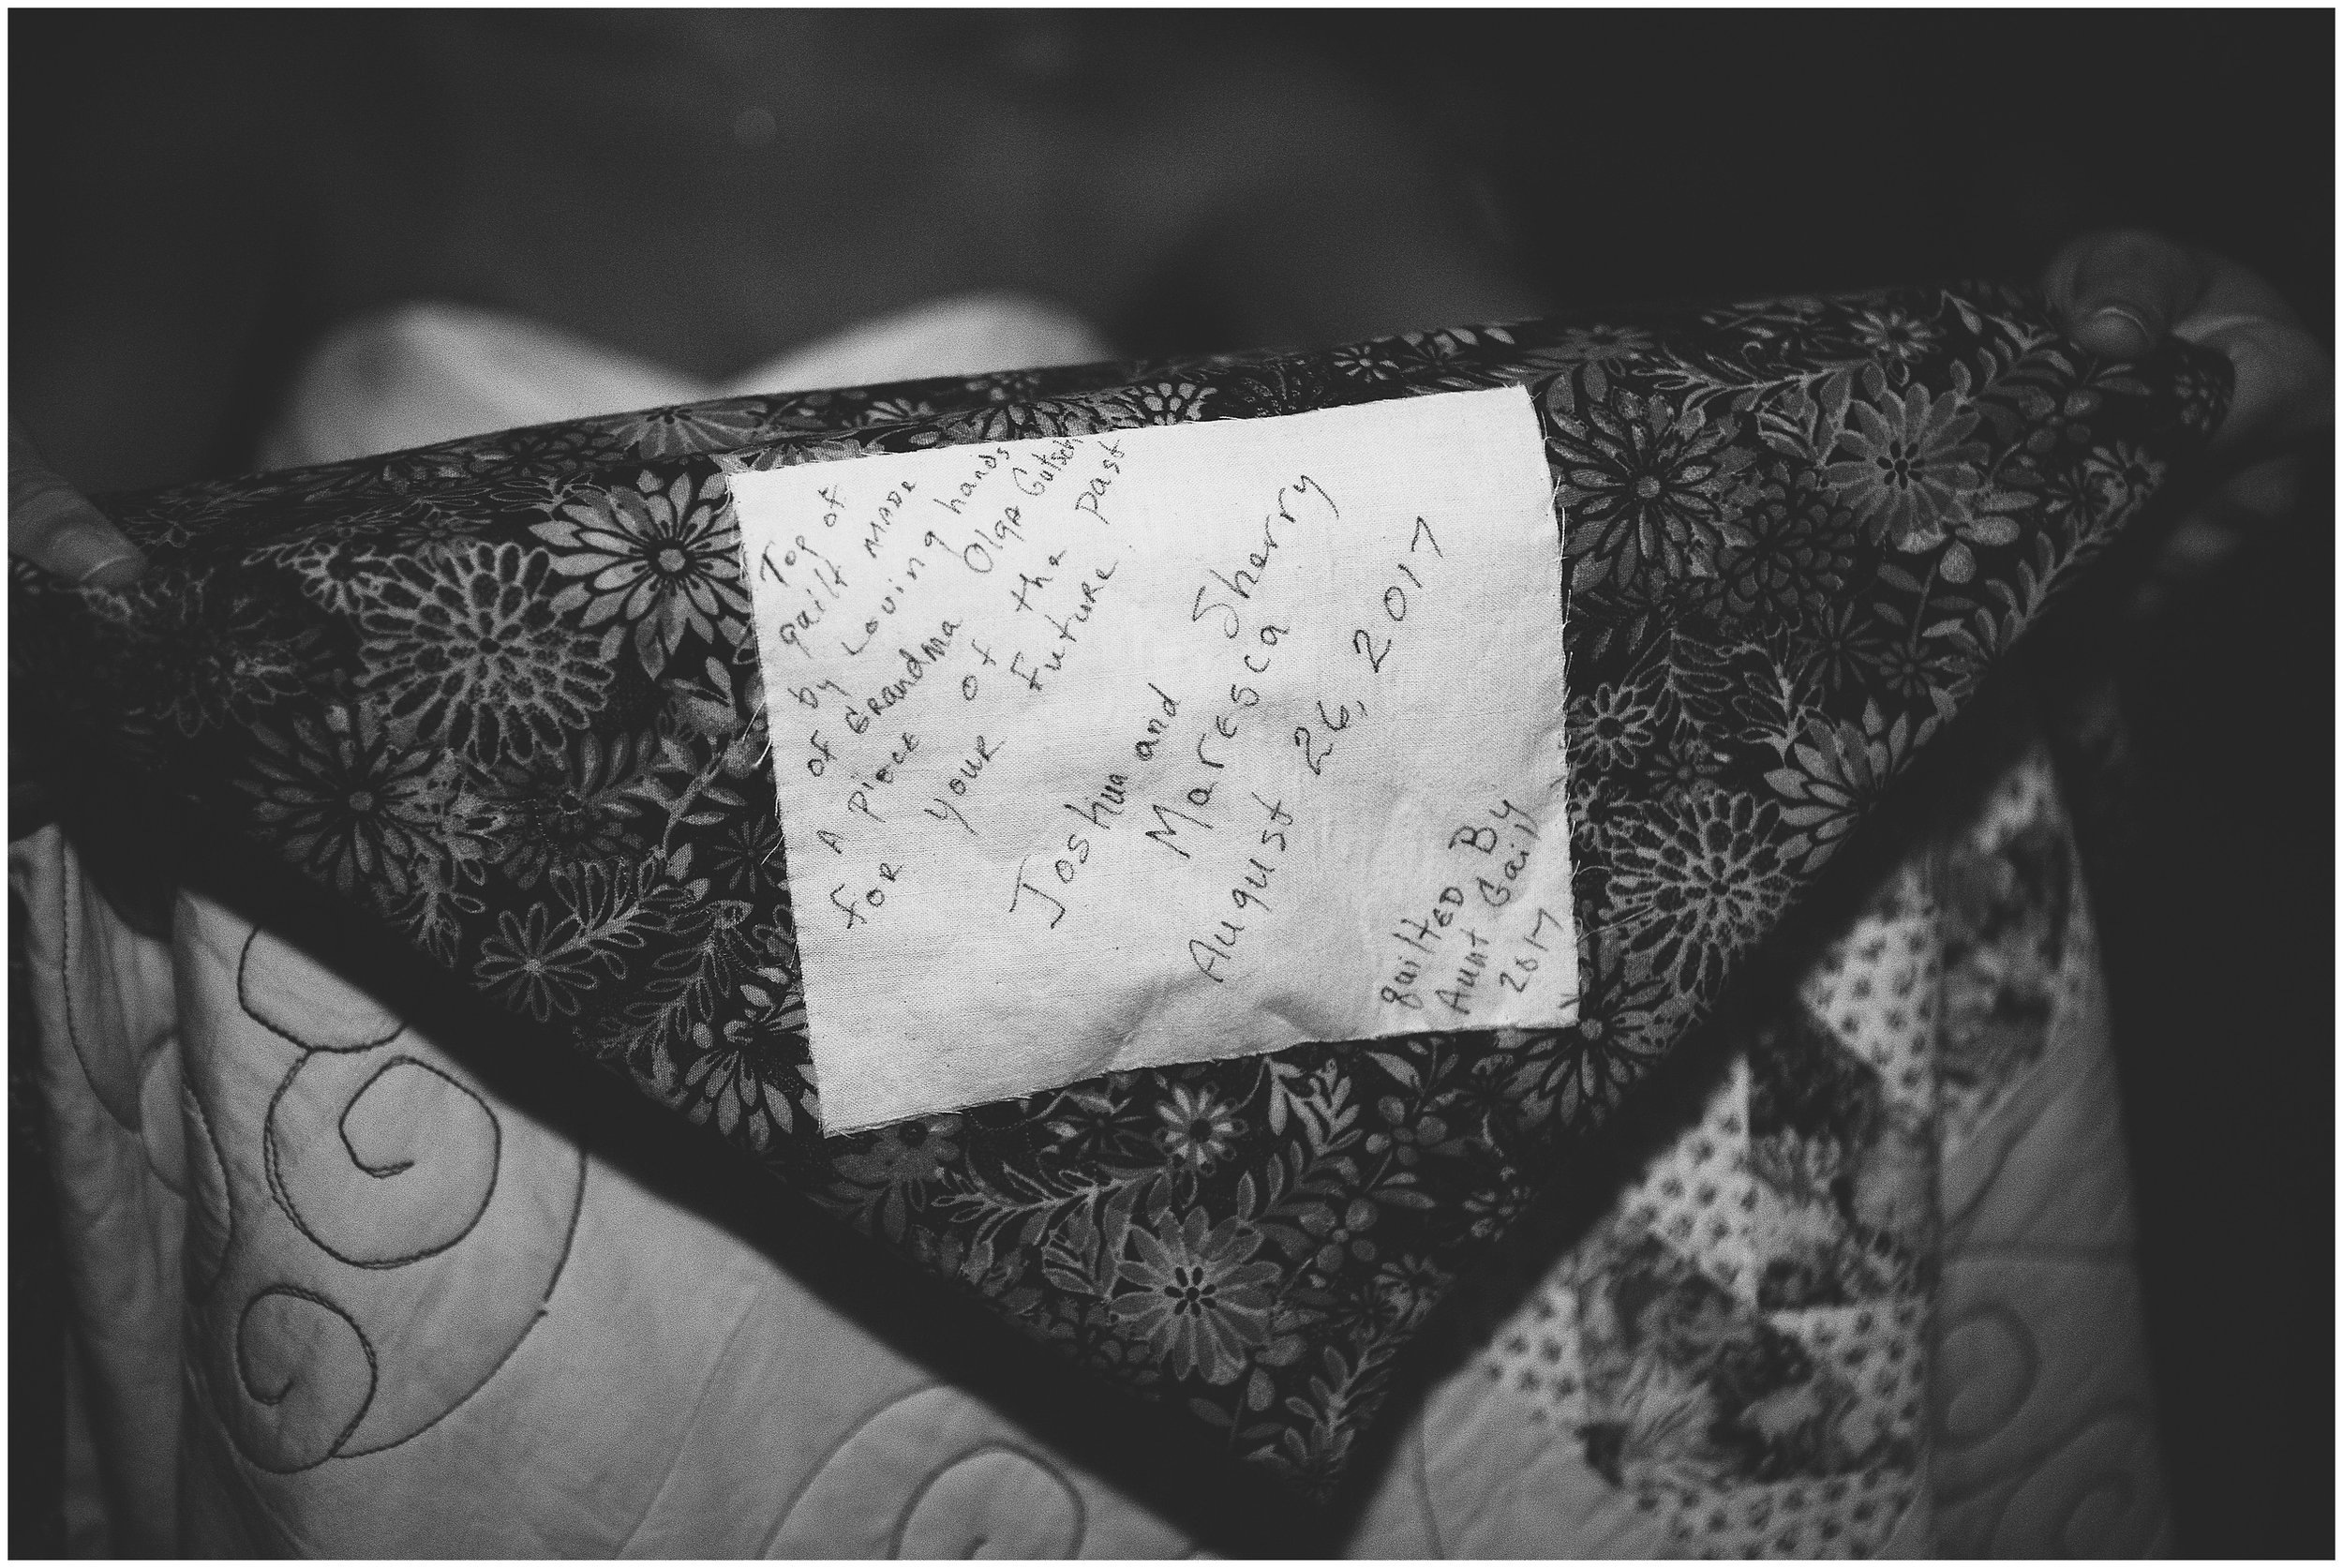 Top of
quilt MADE
by Loving hands
of Grandma Olga Gutsch
A piece of the past
For your Future.
Joshua and
Maresca Sherry
August 26, 2017
quilted By
Aunt Gail
2017